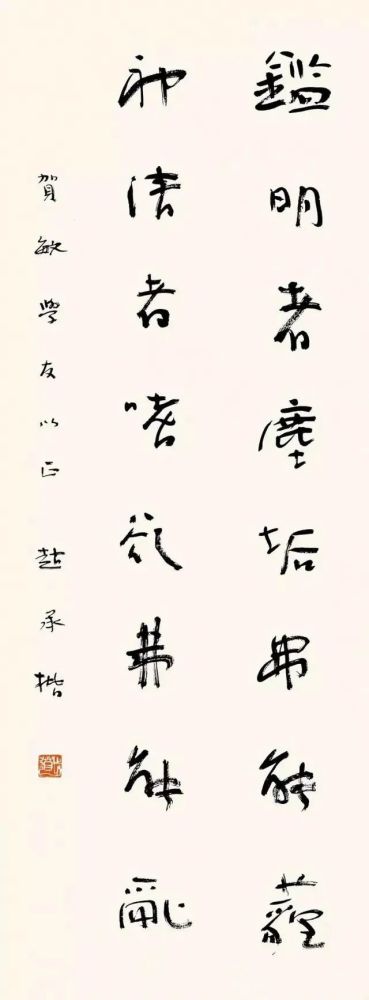 鑑明者塵垢弗能薶
神清者嗜欲弗能亂
賀敏學友以正 趙承楷